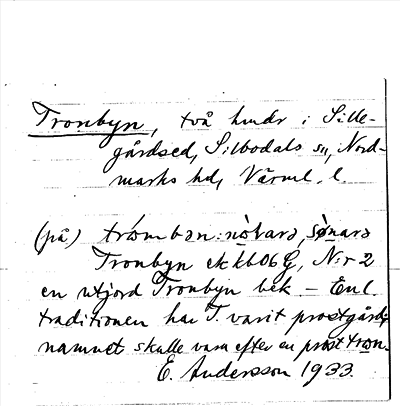 Tronbyn, två hmdr i Sille-
gårdsed, Silbodals sn, Nord-
marks hd, Värml. l.
(på) tròmban: nòkara, sø̀nara
Tronbyn ek kb06G, N:r 2
en utjord Tronbyn bek – Enl
traditionen har T. varit prostgård,
namnet skulle vara efter en prost tron.
E. Andersson 1933.